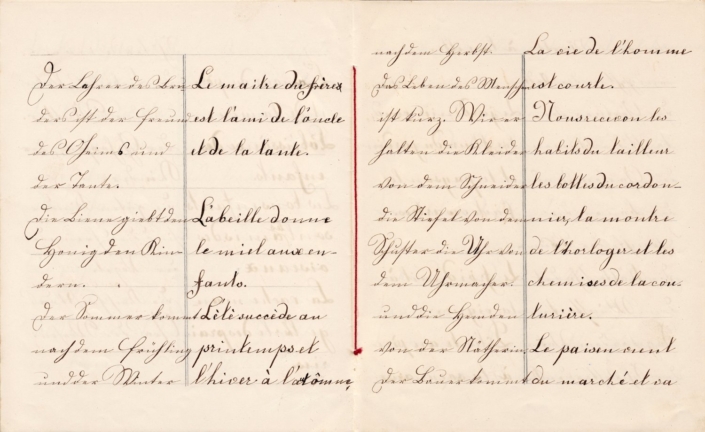 Der Lehrer des Bru
ders ist der Freund
des Oheims und
der Tante.
Die Biene giebt den
Honig den Kin-
dern.
Der Sommer kommt
nach dem Frühling
und der Winter
Le maitre du frère
est l'ami de l'oncle
et de la tante.
L'abeille donne
le miel aux en-
fants.
L'été succède au
printemps et
l'hiver à l'automne
nach dem Herbst.
Das Leben des Menschen
ist kurz. Wir er-
halten die Kleider
von dem Schneider
die Stiefel von dem
Schuster die Uhr von
dem Uhrmacher.
und die Hemden
von der Nätherin.
Der Bauer kommt
La vie de l'homme
est courte.
Nous recevon les
habits du tailleur
les bottes du cordon-
nier, la montre
de l'horloger et les
chemises de la cou-
turière.
Le paisen vient
du marché et va